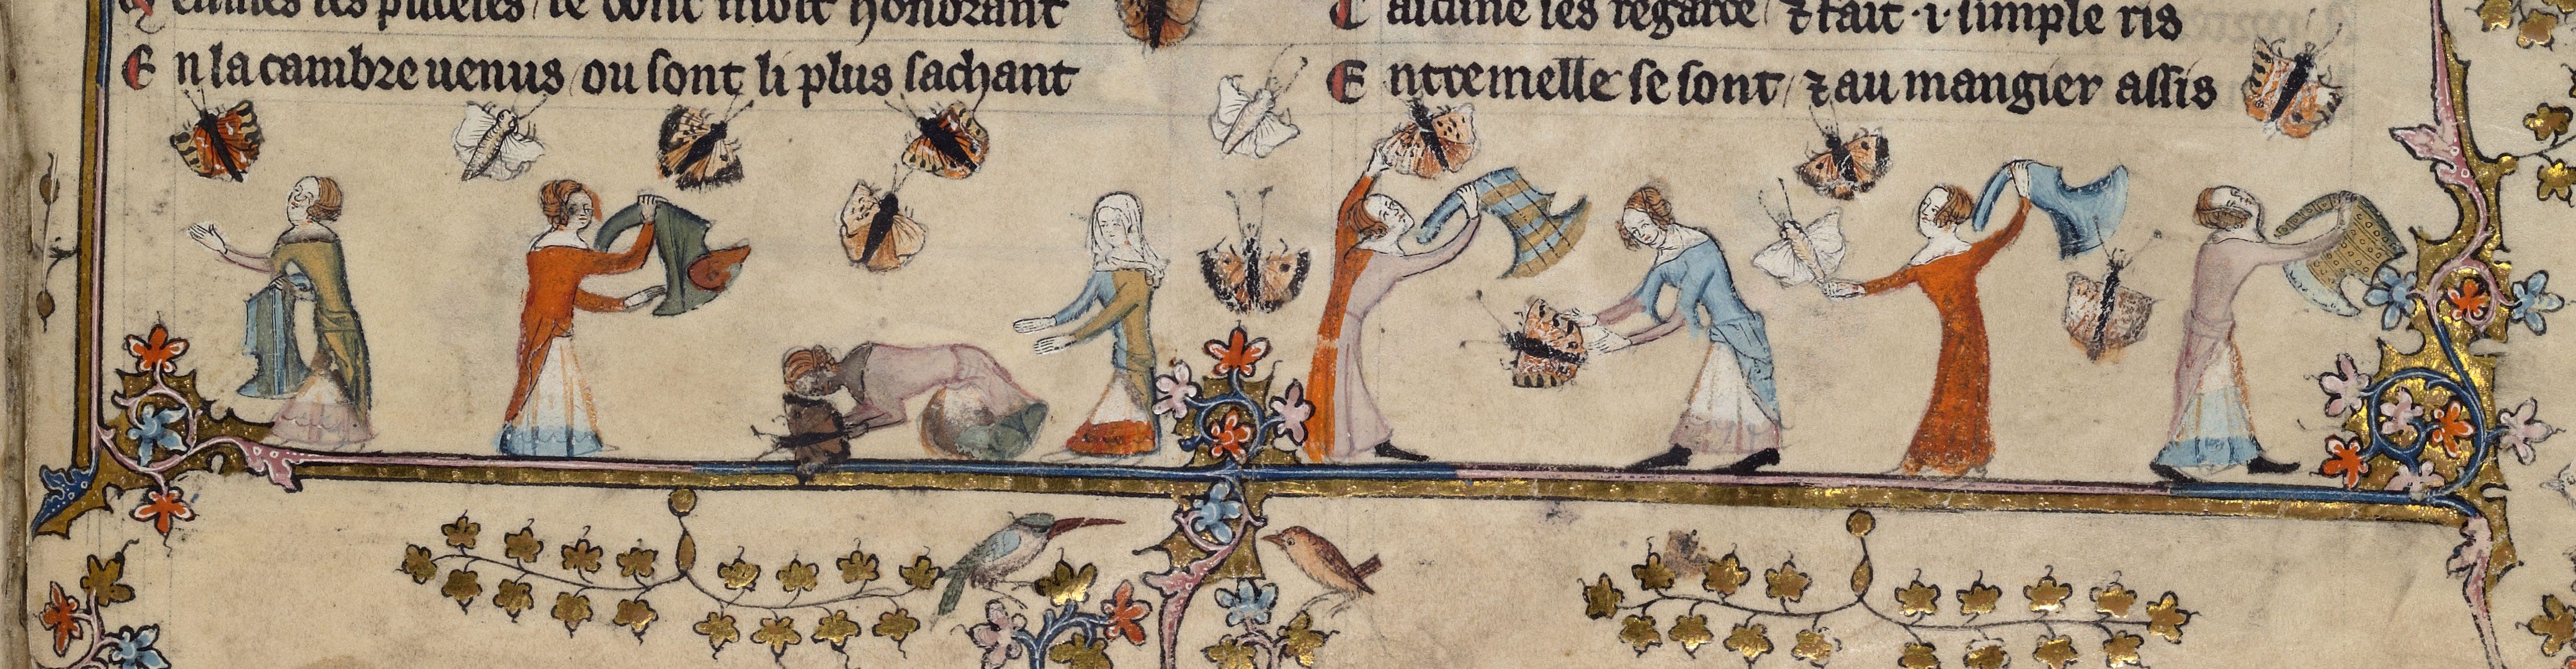 les puceles / le dont moit honorant
En la cambre uenus / ou sont li plus sachant
aucune les regarde / ⁊ fait ·i· simple ris
Entremelle se sont / ⁊ au mangier assis